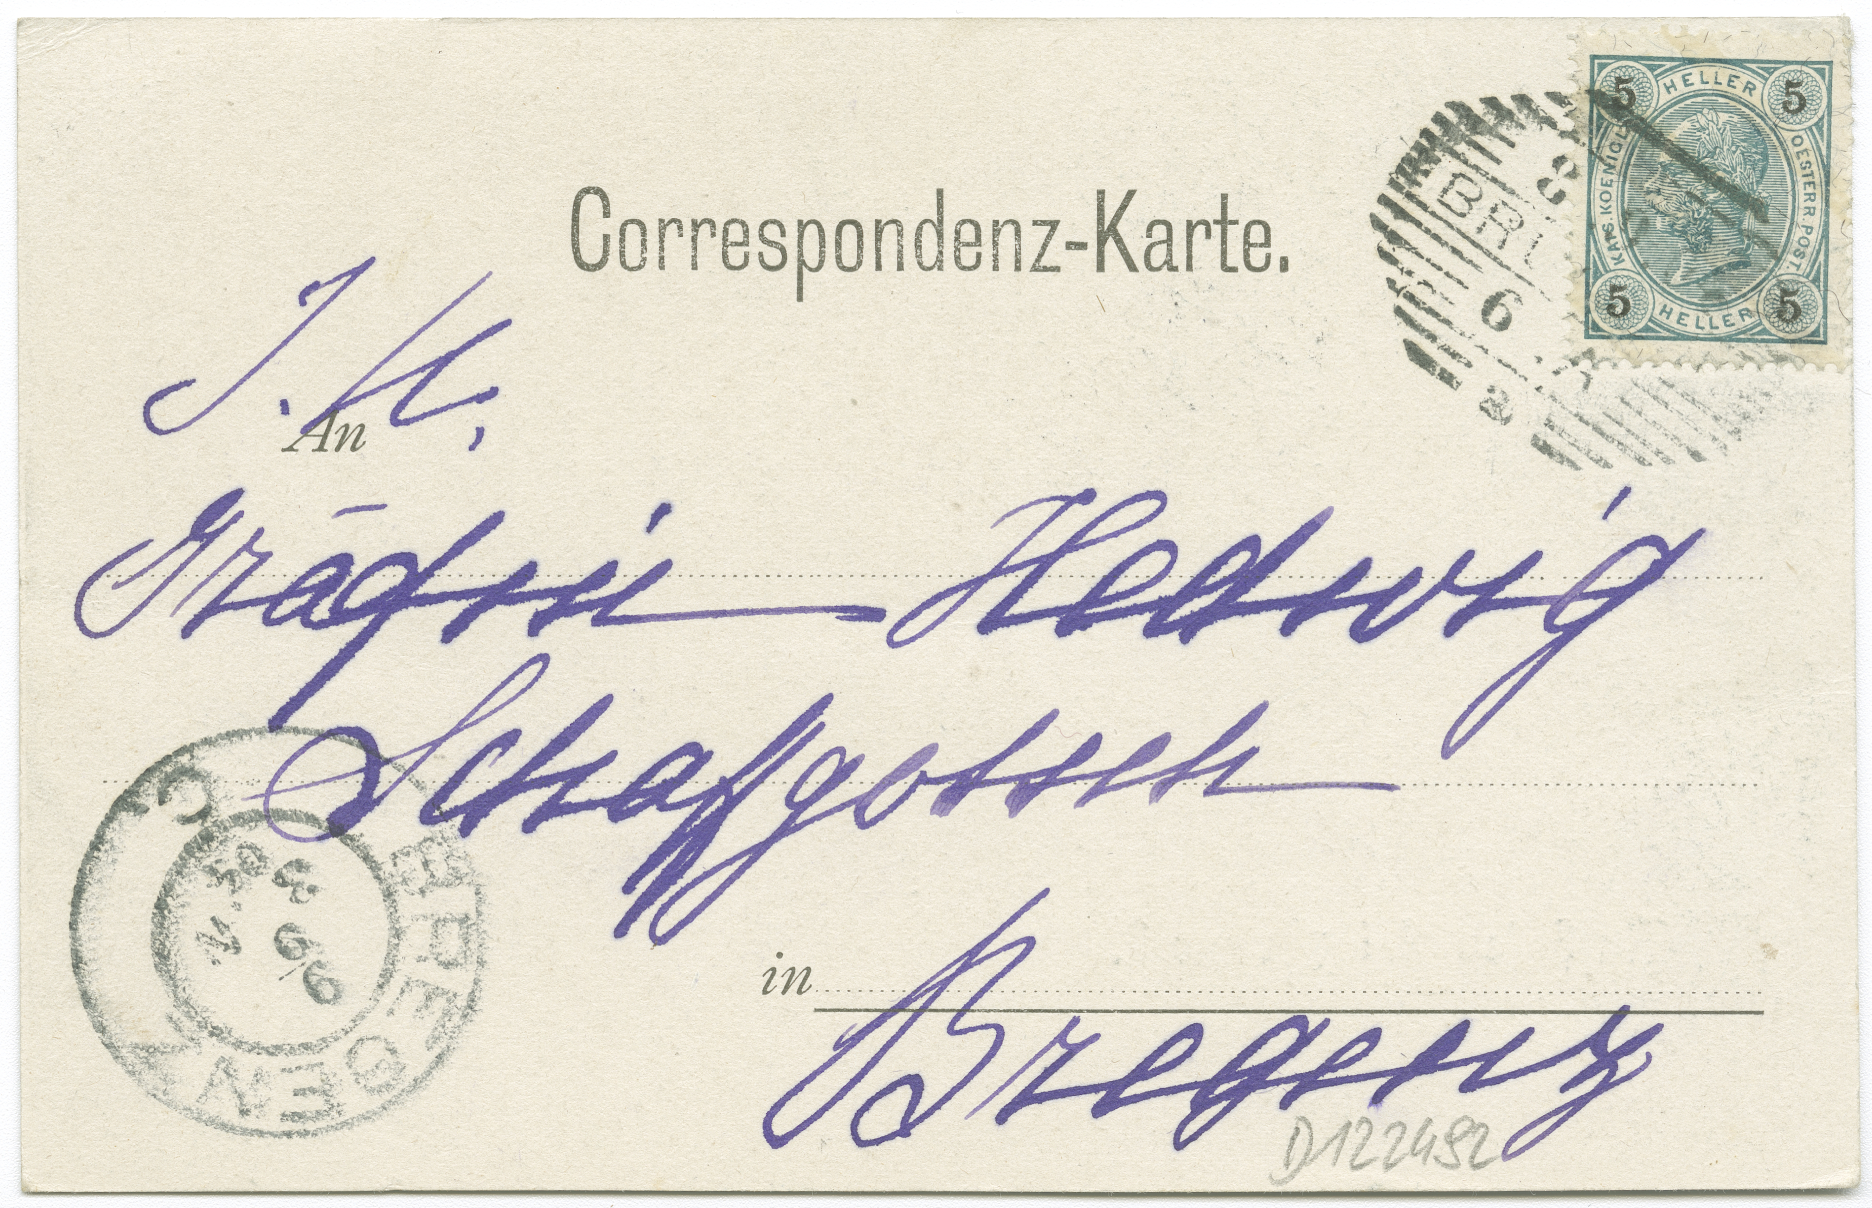 Correspondenz-Karte.
5 HELLER 5
KAIS. KOENIGL.
OESTERR. POST.
5 HELLER 5
BRE
6
J. H.,
An
Gräfin Hedwig
Schaffgotsch
in
Bregenz
BREGENZ
D122492